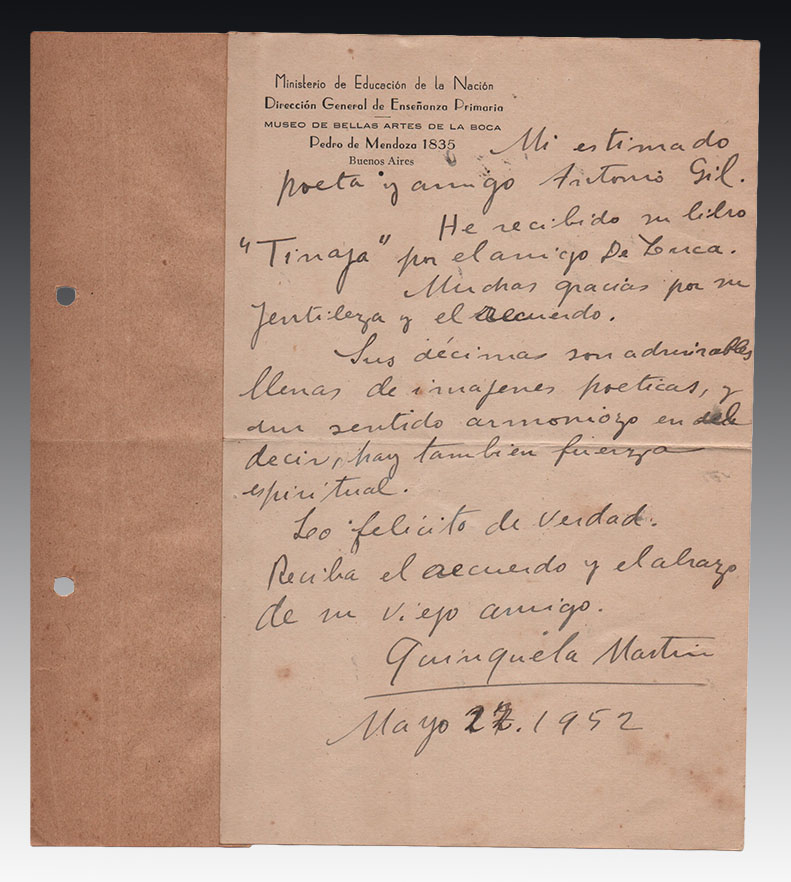 Ministerio de Educación de la Nación
Dirección General de Enseñanza Primaria
MUSEO DE BELLAS ARTES DE LA BOCA
Pedro de Mendoza 1835
Buenos Aires
Mi estimado
poeta y amigo Antonio Gil.
He recibido su libro
"Tinaja" por el amigo De Luca.
Muchas gracias por su
jentileza y el recuerdo.
Sus décimas son admirables
llenas de imagenes poeticas, y
un sentido armoniozo en el
decir, hay tambien fuerza
espiritual.
Lo felicito de verdad.
Reciba el recuerdo y el abrazo
de su viejo amigo.
Quinquela Martin
Mayo 27. 1952